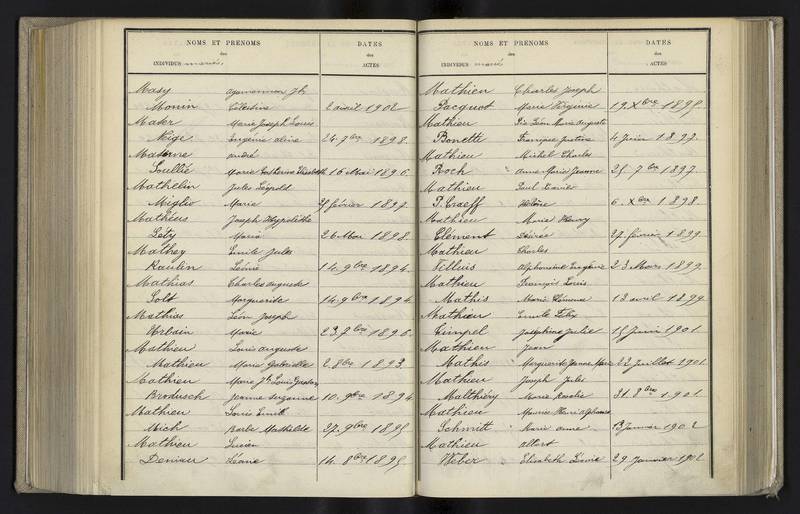 NOMS ET PRÉNOMS
des
INDIVIDUS mariés.
DATES
des
ACTES
Masy
Monin Célestine 2 avril 1902
Mater Marie Joseph Louis
Neige Eugénie aline 24. 7bre 1898.
Materne André
Soullié Marie Catherine Elisabeth 16 Mai 1896.
Mathelin Jules Léopold
Miglio Marie février 1897.
Matheus Joseph Hyppolithe
Léty Marie 26 Mai 1898.
Mathey Emile Jules
Raulin Léonie 14. 9bre 1894.
Mathias Charles auguste
Solt Marguerite 14. 9bre 1894.
Mathias Léon Joseph
Urbain Marie 23. 7bre 1896.
Mathieu Louis auguste
Mathieu Marie Gabrielle 2. 8bre 1893.
Mathieu Marie Jh Louis Gaston
Brodusch Jeanne Suzanne 10. 9bre 1894
Mathieu Louis Emile
Mich Barbe Mathilde 27. 9bre 1895
Mathieu Lucien
Deniau Léonie 14. 8bre 1895.
NOMS ET PRÉNOMS
des
INDIVIDUS marié
DATES
des
ACTES
Mathieu Charles Joseph
Pacquot Marie Virginie 19. Xbre 1895
Mathieu Pie Léon Marie Auguste
Bonette Françoise Justine 4 Juin 1897.
Mathieu Michel Charles
Roch Anne Marie Jeanne 25. 7bre 1897.
Mathieu Paul Xavier
Héloïse 6. Xbre 1898.
Mathieu Marie Henry
Clément Désirée 27. février 1899
Mathieu Charles
Alphonsine Eugénie 23 Mars 1899.
Mathieu François Louis
Mathis Marie Clémence 18 avril 1899
Mathieu Emile Félix
Gimpel Joséphine Julie 15 Juin 1901
Mathieu Jean
Mathis Marguerite Jeanne Marie 22 Juillet 1901.
Mathieu Joseph Jules
Matthéry Marie Rosalie 31. 8bre 1901.
Mathieu Maurice Henri Alphonse
Schmitt Marie anne 13 Janvier 1902
Mathieu albert
Weber Elisabeth 29 Janvier 1902.